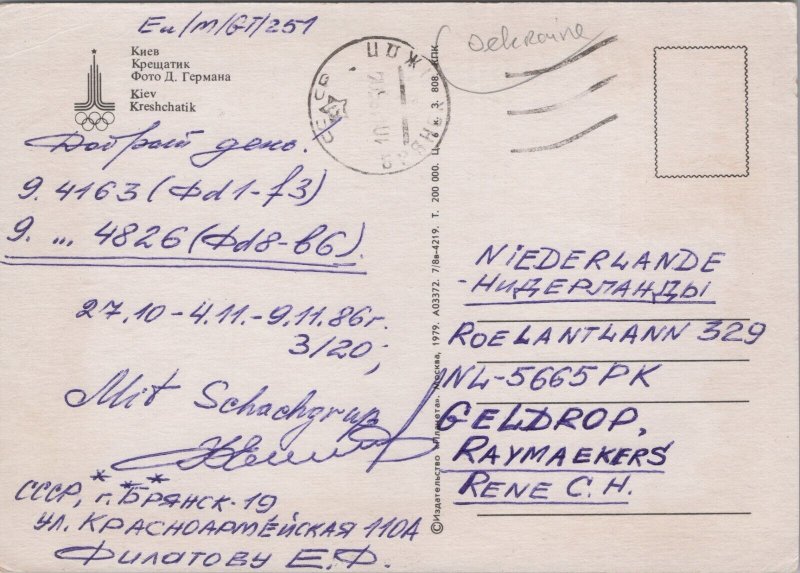 Eu/M/GT/251
Киев
Крещатик
Фото Д. Германа
Kiev
Kreshchatik
Добрый день.
9. 4163 (Фd1-f3)
9. ... 4826 (Фd8-b6).
27.10-4.11.-9.11.86г.
3/20;
Mit Schachgruß
* * *
СССР, г. БРЯНСК-19
УЛ. КРАСНОАРМЕЙСКАЯ 110А
ФИЛАТОВУ Е.Ф.
©Издательство «Планета». Москва, 1979. А03372. 7/8в-4219. Т. 200 000. Ц. 6 к. З. 808. КПК
Oekraine
СССР
NIEDERLANDE
-НИДЕРЛАНДЫ
ROELANTLANN 329
NL-5665 PK
GELDROP,
RAYMAEKERS
RENE C.H.